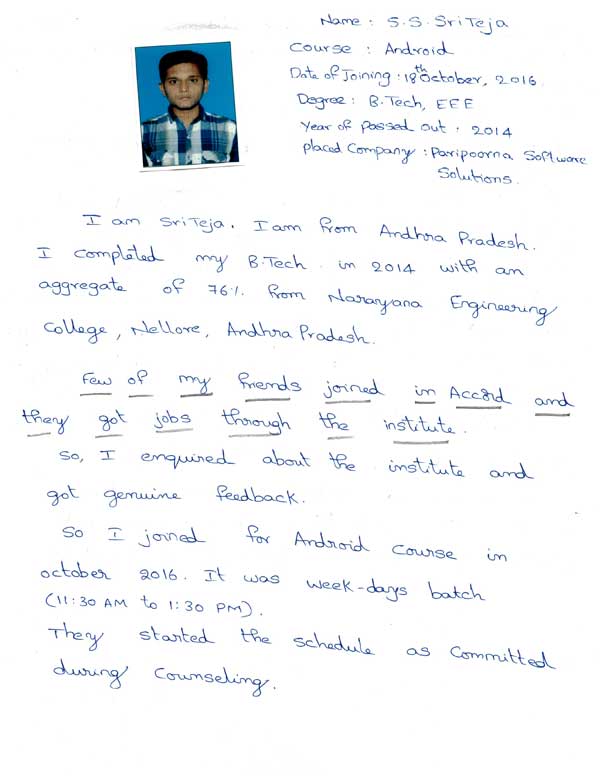 Name : S.S. SriTeja
Course : Android
Date of Joining : 18th October, 2016
Degree : B.Tech, EEE
Year of Passed out : 2014
Placed Company : Paripoorna Software
Solutions.
I am SriTeja. I am from Andhra Pradesh.
I completed my B.Tech in 2014 with an
aggregate of 76%. from Narayana Engineering
College, Nellore, Andhra Pradesh.
Few of my friends joined in Accord and
they got jobs through the institute.
So, I enquired about the institute and
got genuine feedback.
So I joined for Android course in
october 2016. It was week-days batch
(11:30 AM to 1:30 PM).
They started the schedule as committed
during Counseling.